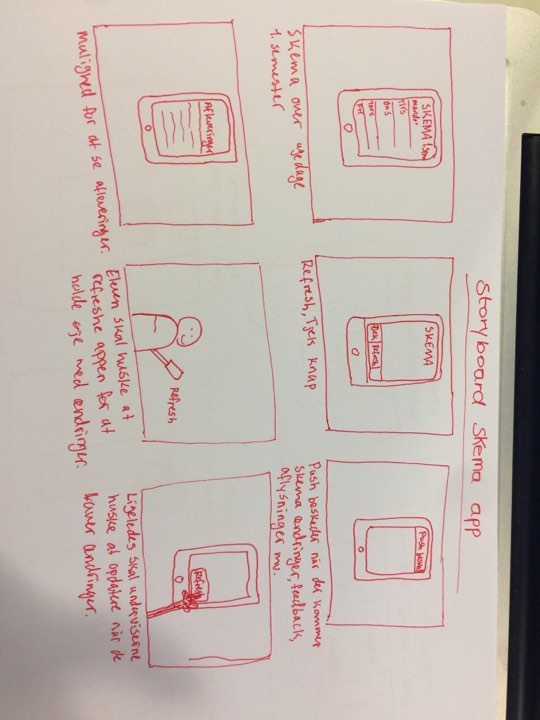 Storyboard Skema app
SKEMA 1.sem
mandag
TIRS
ons
tors
FRE
Skema over ugedage
1. semester
SKEMA
Tjek Refresh
Refresh, Tjek knap
Push besked
Push beskeder når der kommer
skema ændringer, feedback,
aflysninger mv.
Afleveringer
Mulighed for at se afleveringer.
Refresh
Eleven skal huske at
refreshe appen for at
holde øje med ændringer.
Refresh
Ligeledes skal underviserne
huske at opdatere når de
laver ændringer.